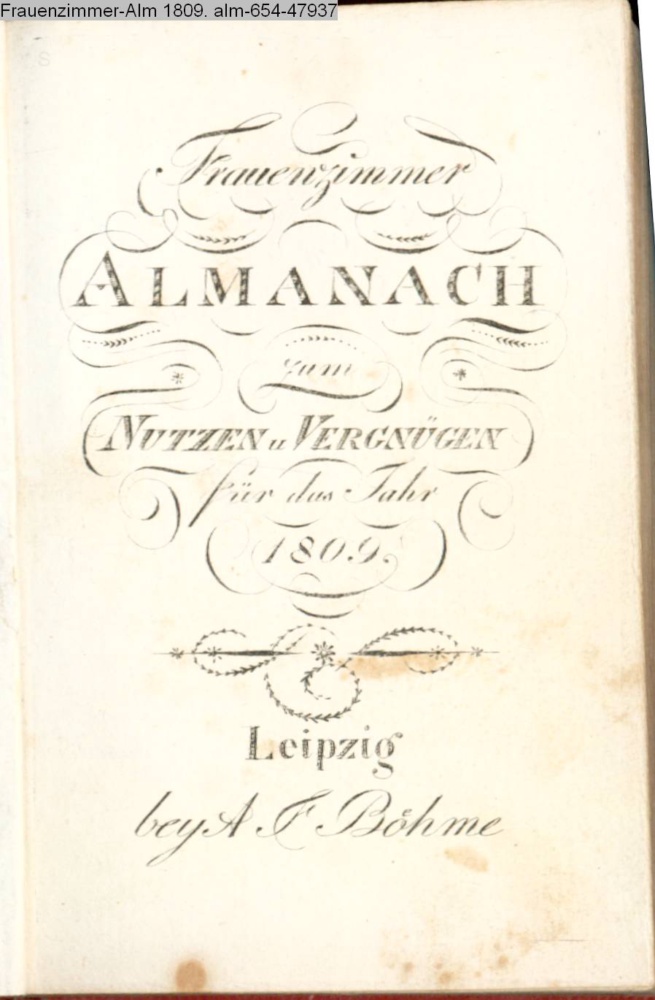 Frauenzimmer-Alm 1809. alm-654-47937
Frauenzimmer
ALMANACH
zum
NUTZEN u VERGNÜGEN
für das Jahr
1809.
Leipzig
bey A F Böhme